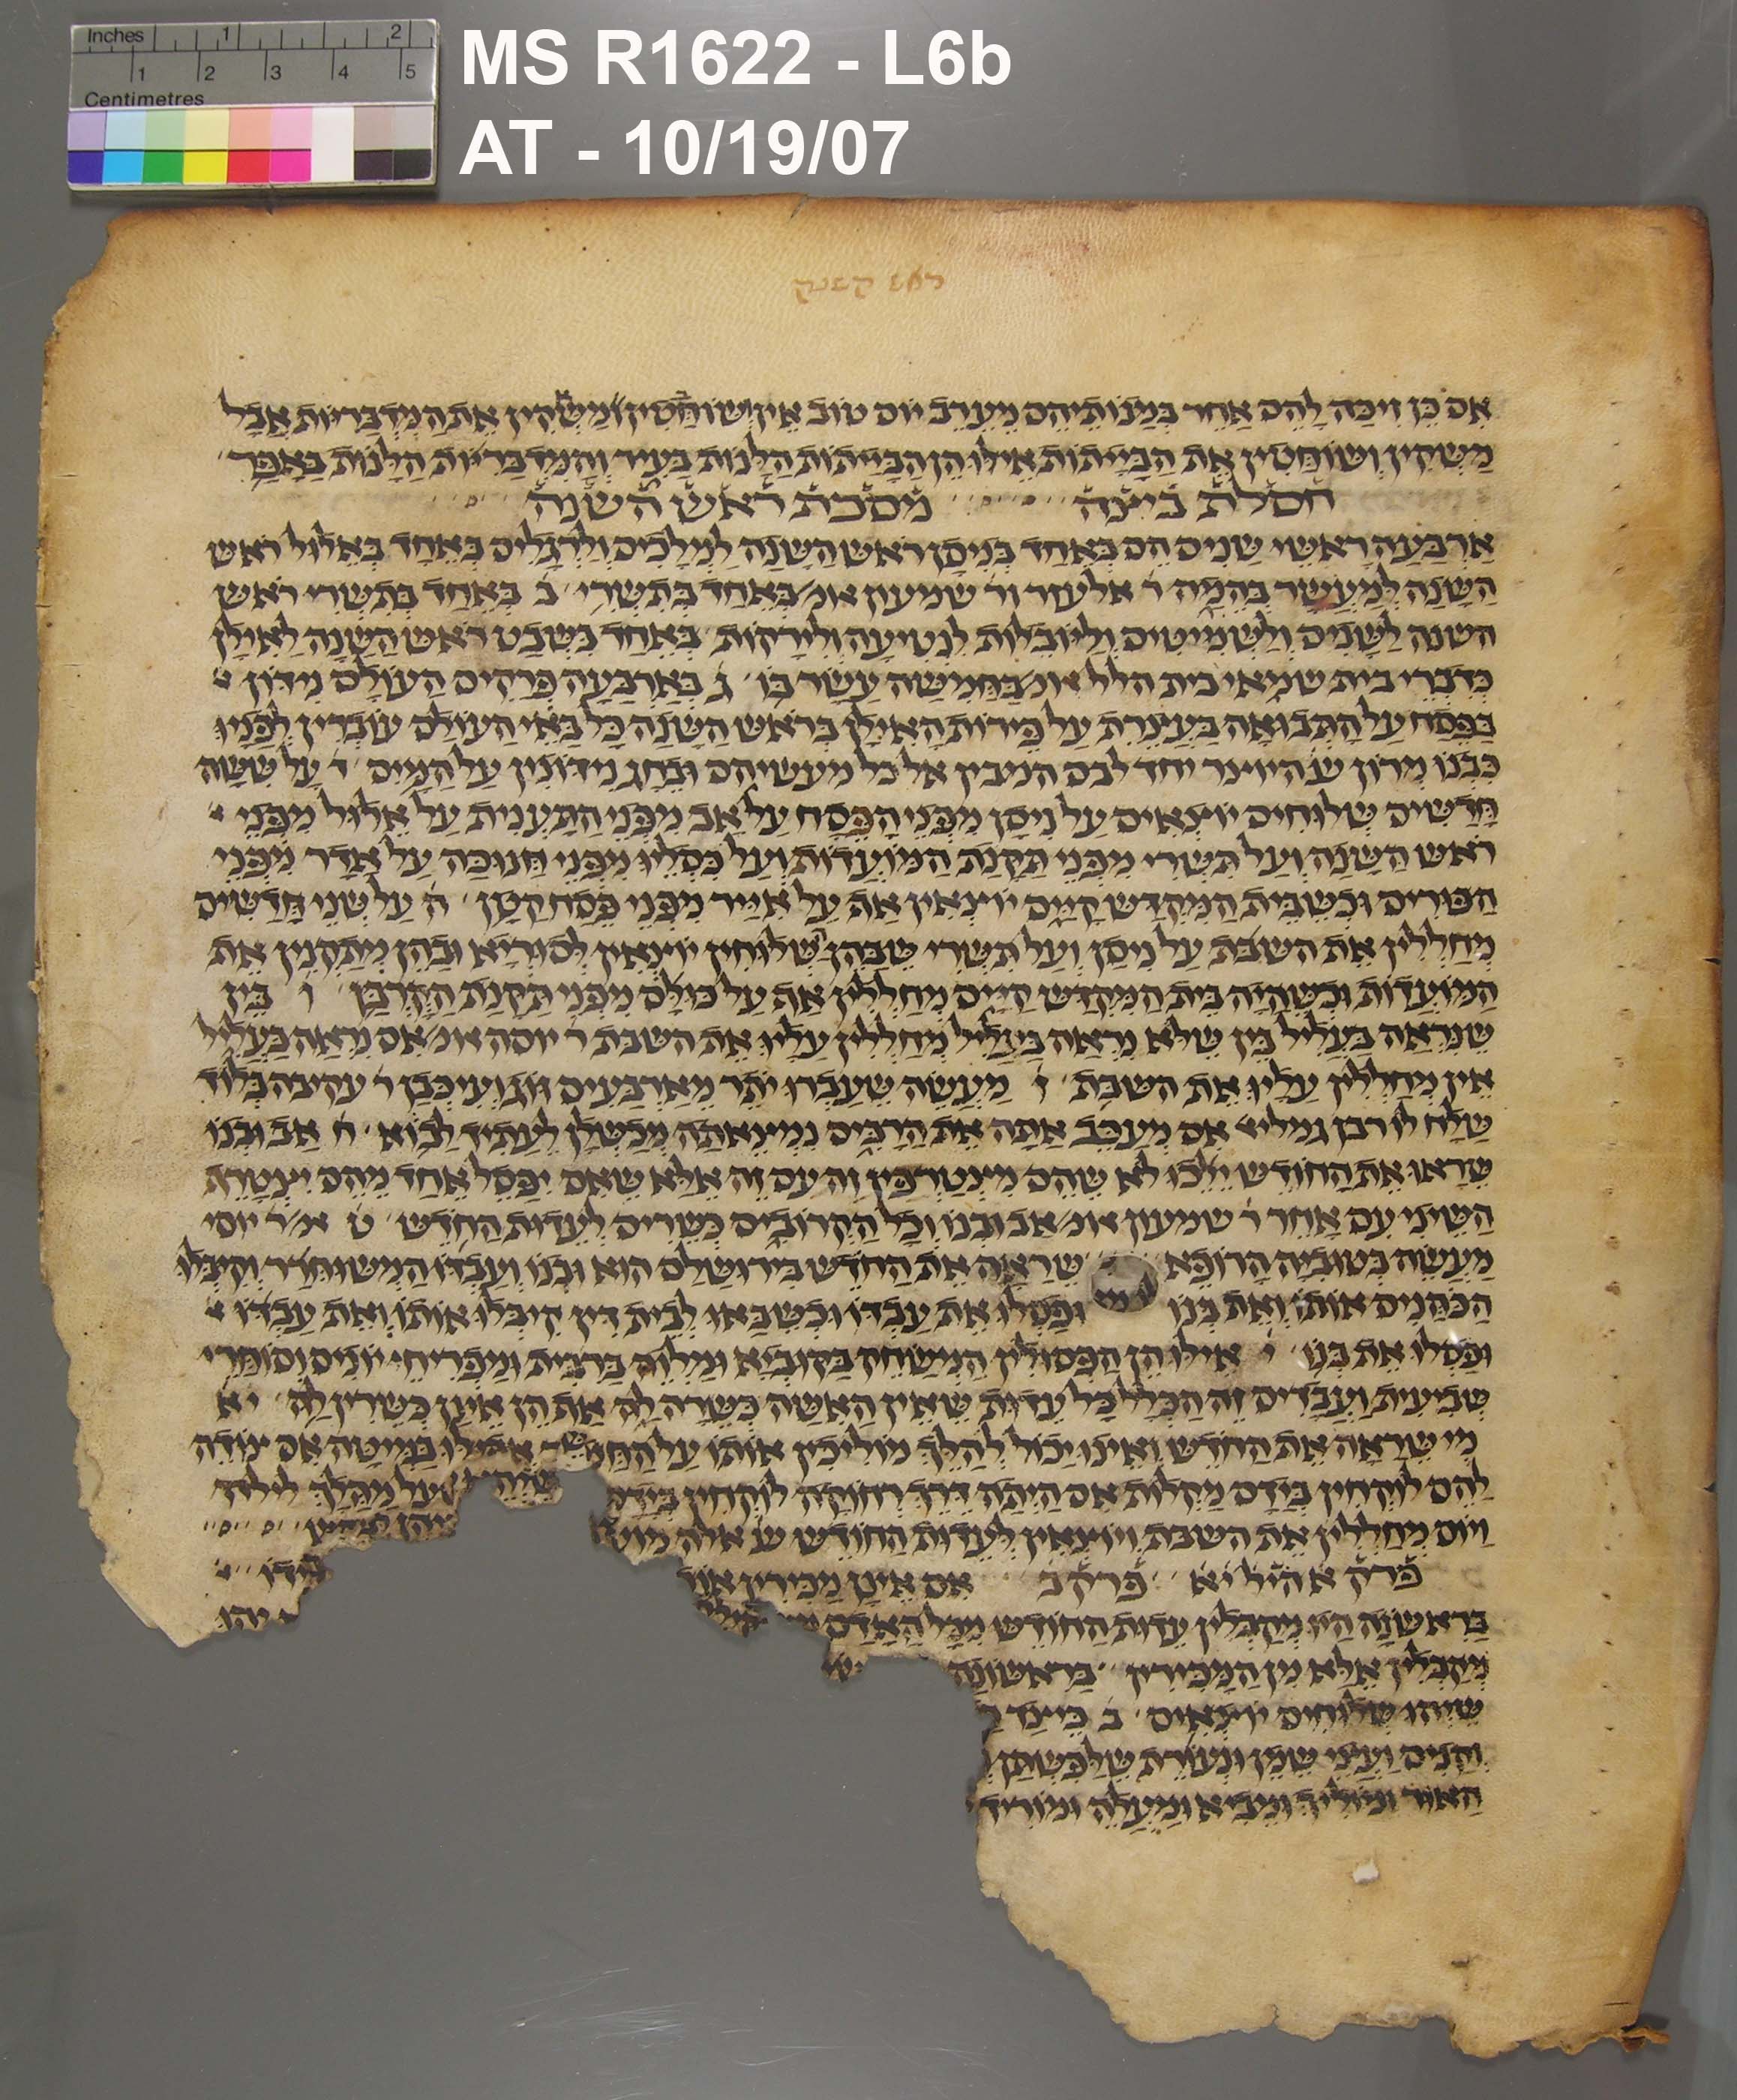 Inches 1 2
1 2 3 4 5
Centimetres
MS R1622 - L6b
AT - 10/19/07
ראש
אם כן זיכה להם אחר במנותיהם מערב יום טוב אין שוחטין ומשקין את המדבריות אבל
משקין ושוחטין את הבייתות אילו הן הבייתות הלנות בעיר והמדבריות הלנות באבר
חסלת ביצה מסכת ראש השנה
ארבעה ראשי שנים הם באחד בניסן ראש השנה למלכים ולרגלים באחד באלול ראש
השנה למעשר בהמה ר אלעזר ור שמעון אומ באחד בתשרי ב באחד בתשרי ראש
השנה לשנים ולשמיטים וליובלות לנטיעה ולירקות באחד בשבט ראש השנה לאילן
כדברי בית שמאי בית הלל אומ בחמישה עשר בו ג בארבעה פרקים העולם נידון
בפסח על התבואה בעצרת על פירות האילן בראש השנה כל באי העולם עוברין לפניו
כבנו מרון שנ היוצר יחד לבם המבין אל כל מעשיהם ובחג נידונין על המים ד על ששה
חדשים שלוחים יוצאים על ניסן מפני הפסח על אב מפני התענית על אלול מפני
ראש השנה ועל תשרי מפני תקנת המועדות ועל כסליו מפני חנוכה על אדר מפני
הפורים וכשבית המקדש קיים יוצאין אף על אייר מפני פסח קטן ה על שני חדשים
מחללין את השבת על ניסן ועל תשרי שבהן שלוחין יוצאין לסוריא ובהן מתקנין את
המועדות וכשהיה בית המקדש קיים מחללין אף על כולם מפני תקנת הקרבן ו בין
שנראה בעליל בין שלא נראה בעליל מחללין עליו את השבת ר יוסה אומ אם נראה בעליל
אין מחללין עליו את השבת ז מעשה שעברו יותר מארבעים זוג ועיכבן ר עקיבה בלוד
שלח לו רבן גמליא אם מעכב אתה את הרבים נמצאתה מכשילן לעתיד לבוא ח אב ובנו
שראו את החודש ילכו לא שהם מצטרפין זה עם זה אלא שאם יפסל אחד מהם יצטרף
השיני עם אחר ר שמעון אומ אב ובנו וכל הקרובים כשרים לעדות החדש ט אמ ר יוסי
מעשה בטוביה הרופא שראה את החדש בירושלם הוא ובנו ועבדו המשוחרר וקיבלו
הכהנים אותו ואת בנו ופסלו את עבדו וכשבאו לבית דין קיבלו אותו ואת עבדו
ופסלו את בנו י אילו הן הפסולין המשחק בקוביא ומלוה ברבית ומפריחי יונים וסוחרי
שביעית ועבדים זה הכלל כל עדות שאין האשה כשרה לה אף הן אינן כשרין לה יא
מי שראה את החדש ואינו יכול להלך מוליכין אותו על החמור אפילו במיטה אם צודה
להם לוקחין בידם מקלות אם היתה דרך רחוקה לוקחין בידם על מהלך לילה
ויום מחללין את השבת ויוצאין לעדות החודש שנ אלה מוע
פרק א הלי יא פרק ב אם אינן מכירין אותו
בראשונה היו מקבלין עדות החודש מכל האדם יהו
מקבלין אלא מן המכירין בראשונה
שיהו שלוחים יוצאים ב כיצד
וקנים ועצי שמן ונעורת שלפשתן
האור ומוליך ומביא ומעלה ומוריד